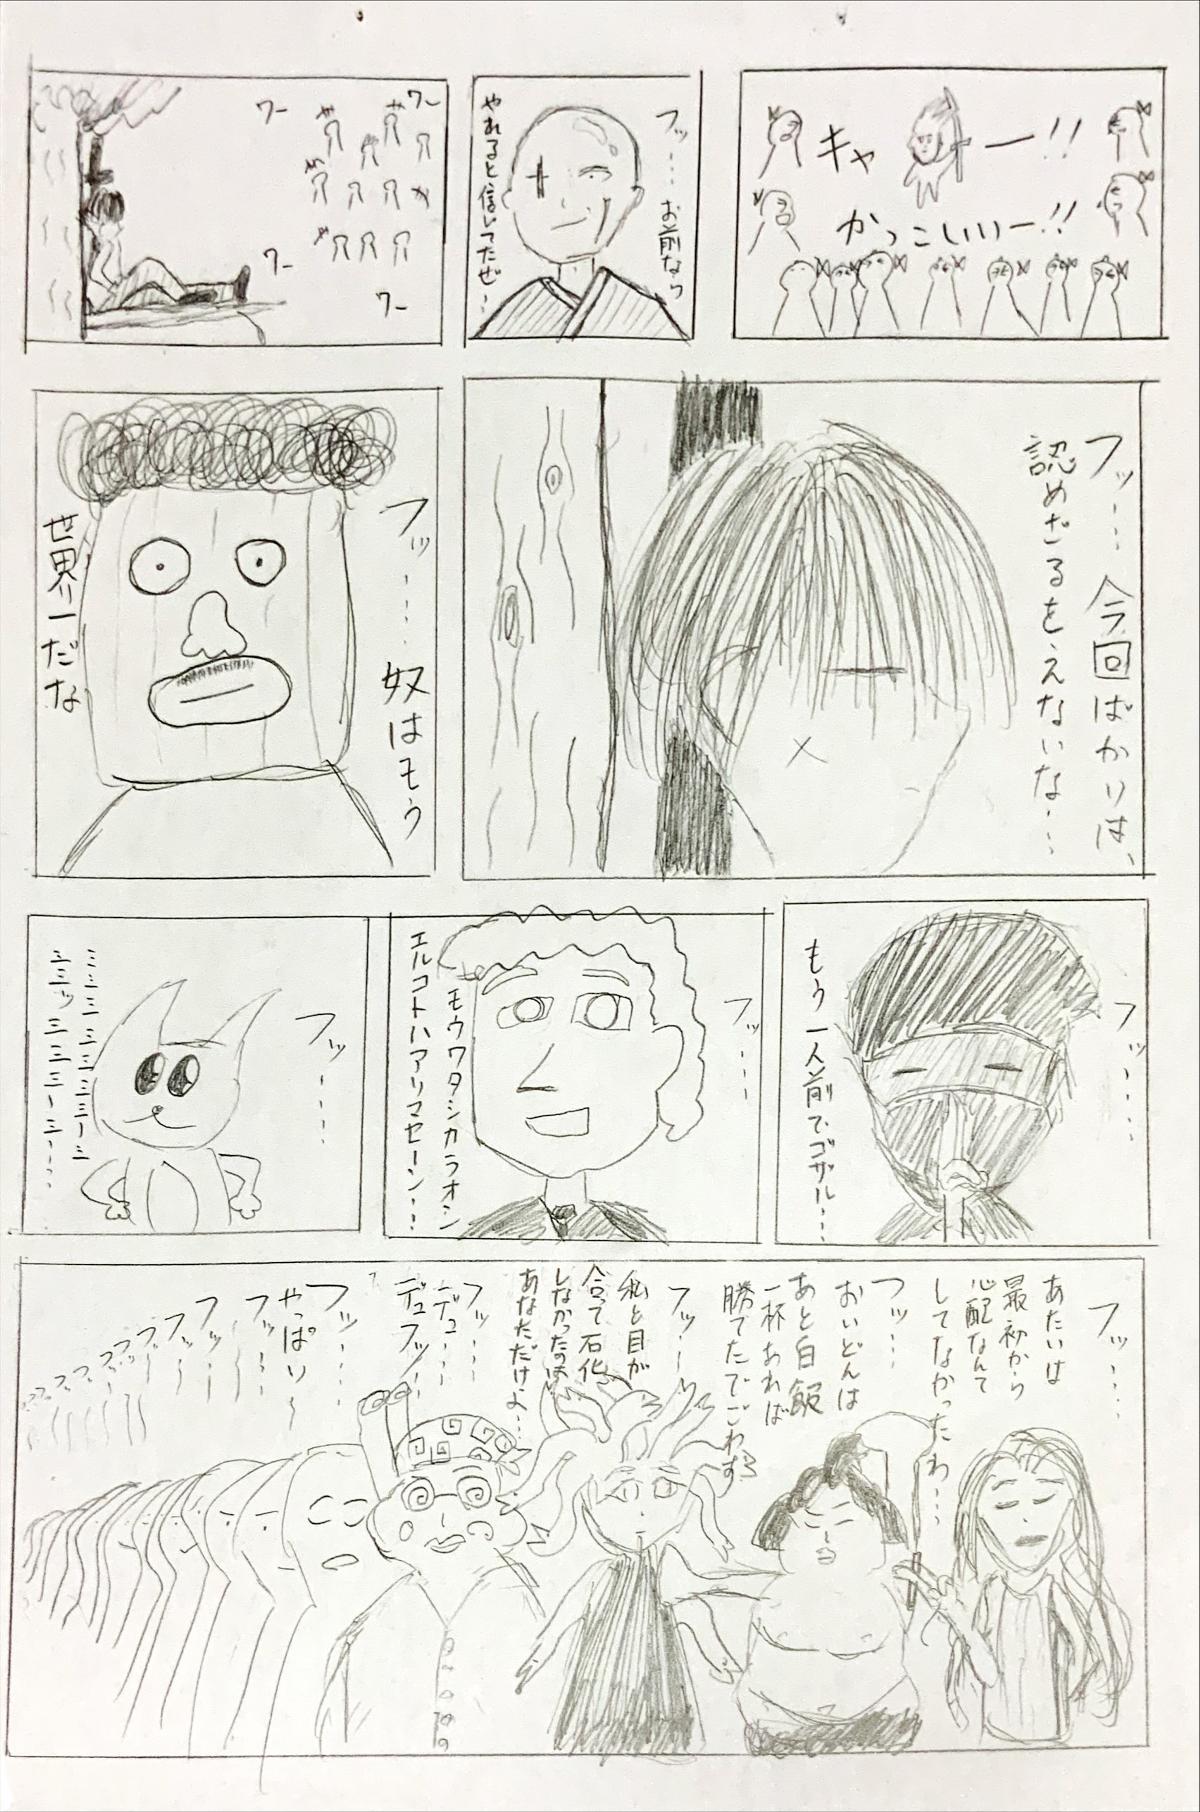 キャー!!
かっこいいー!!
フッ…お前なら
やれると信じてたぜ…
ワー
ワー
ワー
ワー
フッ…今回ばかりは、
認めざるをえないな…
フッ…奴はもう
世界一だな
フッ……
もう一人前でゴザル…
フッ……
モウワタシカラオシ
エルコトハアリマセーン…!
フッ……
ミミミミミミミーミ
ミミッミミミーミー…
フッ……
あたいは
最初から
心配なんて
してなかったわ…
フッ……
おいどんは
あと白飯
一杯あれば
勝てたでごわす
フッ…
私と目が
合って石化
しなかったのは
あなただけよ…
フッ……
デュ…
デュフッ…
フッ……
やっぱり…
フッ…
フッ…
フッ…
フッ…
フッ…